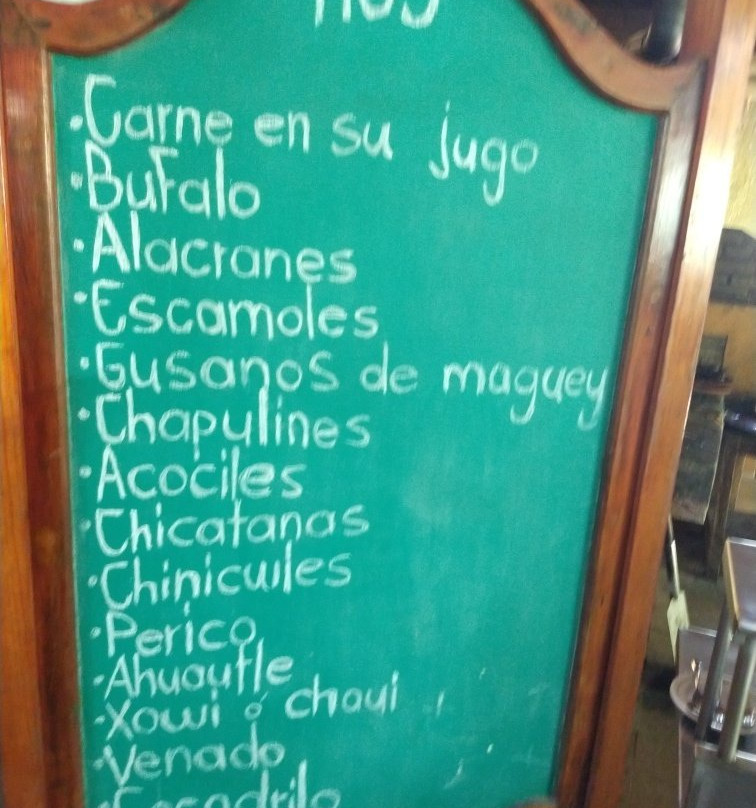 Hoy
·Carne en su jugo
·Bufalo
·Alacranes
·Escamoles
·Gusanos de maguey
·Chapulines
·Acociles
·Chicatanas
·Chinicuiles
·Perico
·Ahuautle
·Xowi ó chaui
·Venado
·Cocodrilo